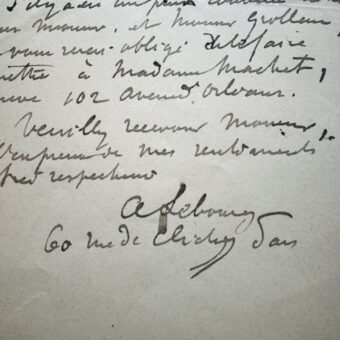 S'il y a un
Monsieur, et Monsieur Grolleau,
vous serais obligé de le faire
à Madame Machet,
102 avenue d'Orléans.
Veuillez recevoir Monsieur,
l'expression de mes sentiments
très respectueux
A Lebourg
60 rue de Clichy Paris